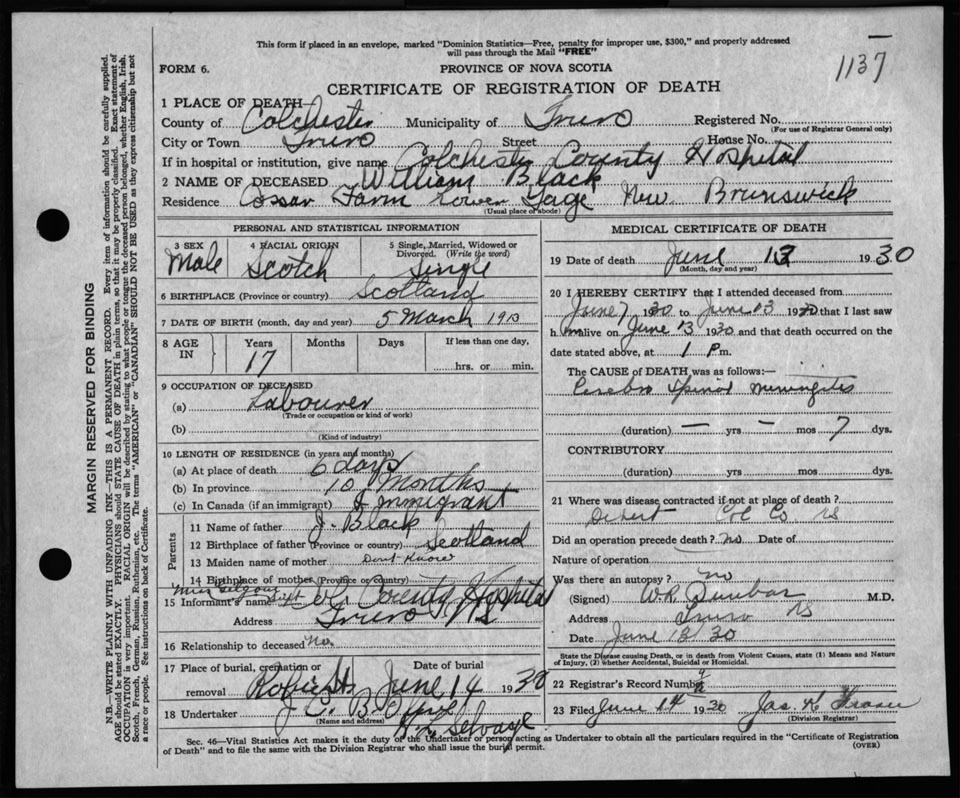 This form if placed in an envelope, marked "Dominion Statistics—Free, penalty for improper use, $300," and properly addressed
will pass through the Mail "FREE"
1137
FORM 6.
PROVINCE OF NOVA SCOTIA
CERTIFICATE OF REGISTRATION OF DEATH
1 PLACE OF DEATH—
County of Colchester Municipality of Truro Registered No.
(For use of Registrar General only)
City or Town Truro Street House No.
If in hospital or institution, give name Colchester County Hospital
2 NAME OF DECEASED William Black
Residence Cossar Farm Lower Gage New Brunswick
(Usual place of abode)
PERSONAL AND STATISTICAL INFORMATION
3 SEX Male
4 RACIAL ORIGIN Scotch
5 Single, Married, Widowed or
Divorced. (Write the word)
Single
6 BIRTHPLACE (Province or country) Scotland
7 DATE OF BIRTH (month, day and year) 5 March 1913
8 AGE IN
Years 17 Months Days If less than one day,
hrs. or min.
9 OCCUPATION OF DECEASED
(a) Labourer
(Trade or occupation or kind of work)
(b)
(Kind of industry)
10 LENGTH OF RESIDENCE (in years and months)
(a) At place of death 6 days
(b) In province 10 Months
(c) In Canada (if an immigrant) Immigrant
Parents
11 Name of father J. Black
12 Birthplace of father (Province or country) Scotland
13 Maiden name of mother Dont Know
14 Birthplace of mother (Province or country)
15 Informant's name Miss Supt Col. County Hospital
Address Truro NS
16 Relationship to deceased No.
17 Place of burial, cremation or
removal
Date of burial
June 14 1930
18 Undertaker J C B
(Name and address)
Selvage
MEDICAL CERTIFICATE OF DEATH
19 Date of death June 13 1930
(Month, day and year)
20 I HEREBY CERTIFY that I attended deceased from
June 7 1930 to June 13 1930 that I last saw
him alive on June 13 1930 and that death occurred on
date stated above, at 1 P m.
The CAUSE of DEATH was as follows:—
Cerebro Spinal Meningitis
(duration) — yrs — mos 7 dys.
CONTRIBUTORY
(duration) yrs mos dys.
21 Where was disease contracted if not at place of death?
Debert Col Co NS
Did an operation precede death? No Date of
Nature of operation
Was there an autopsy? no
(Signed) W.R. Dunbar M.D.
Address Truro NS
Date June 13 30
State the Disease causing Death, or in death from Violent Causes, state (1) Means and Nature
of Injury, (2) whether Accidental, Suicidal or Homicidal.
22 Registrar's Record Number
23 Filed June 14 1930 Jas. K Fraser
(Division Registrar)
Sec. 46—Vital Statistics Act makes it the duty of the Undertaker or person acting as Undertaker to obtain all the particulars required in the "Certificate of Registration
of Death" and to file the same with the Division Registrar who shall issue the burial permit.
(OVER)
MARGIN RESERVED FOR BINDING
N.B.—WRITE PLAINLY WITH UNFADING INK—THIS IS A PERMANENT RECORD. Every item of information should be carefully supplied.
AGE should be stated EXACTLY. PHYSICIANS should STATE CAUSE OF DEATH in plain terms, so that it may be properly classified. Exact statement of
OCCUPATION is very important. RACIAL ORIGIN will be described by stating to what people or tongue the deceased person belonged, whether English, Irish,
Scotch, French, German, Russian, Ruthenian, etc. The terms "AMERICAN" or "CANADIAN" SHOULD NOT BE USED as they express citizenship but not
a race or people. See instructions on back of Certificate.